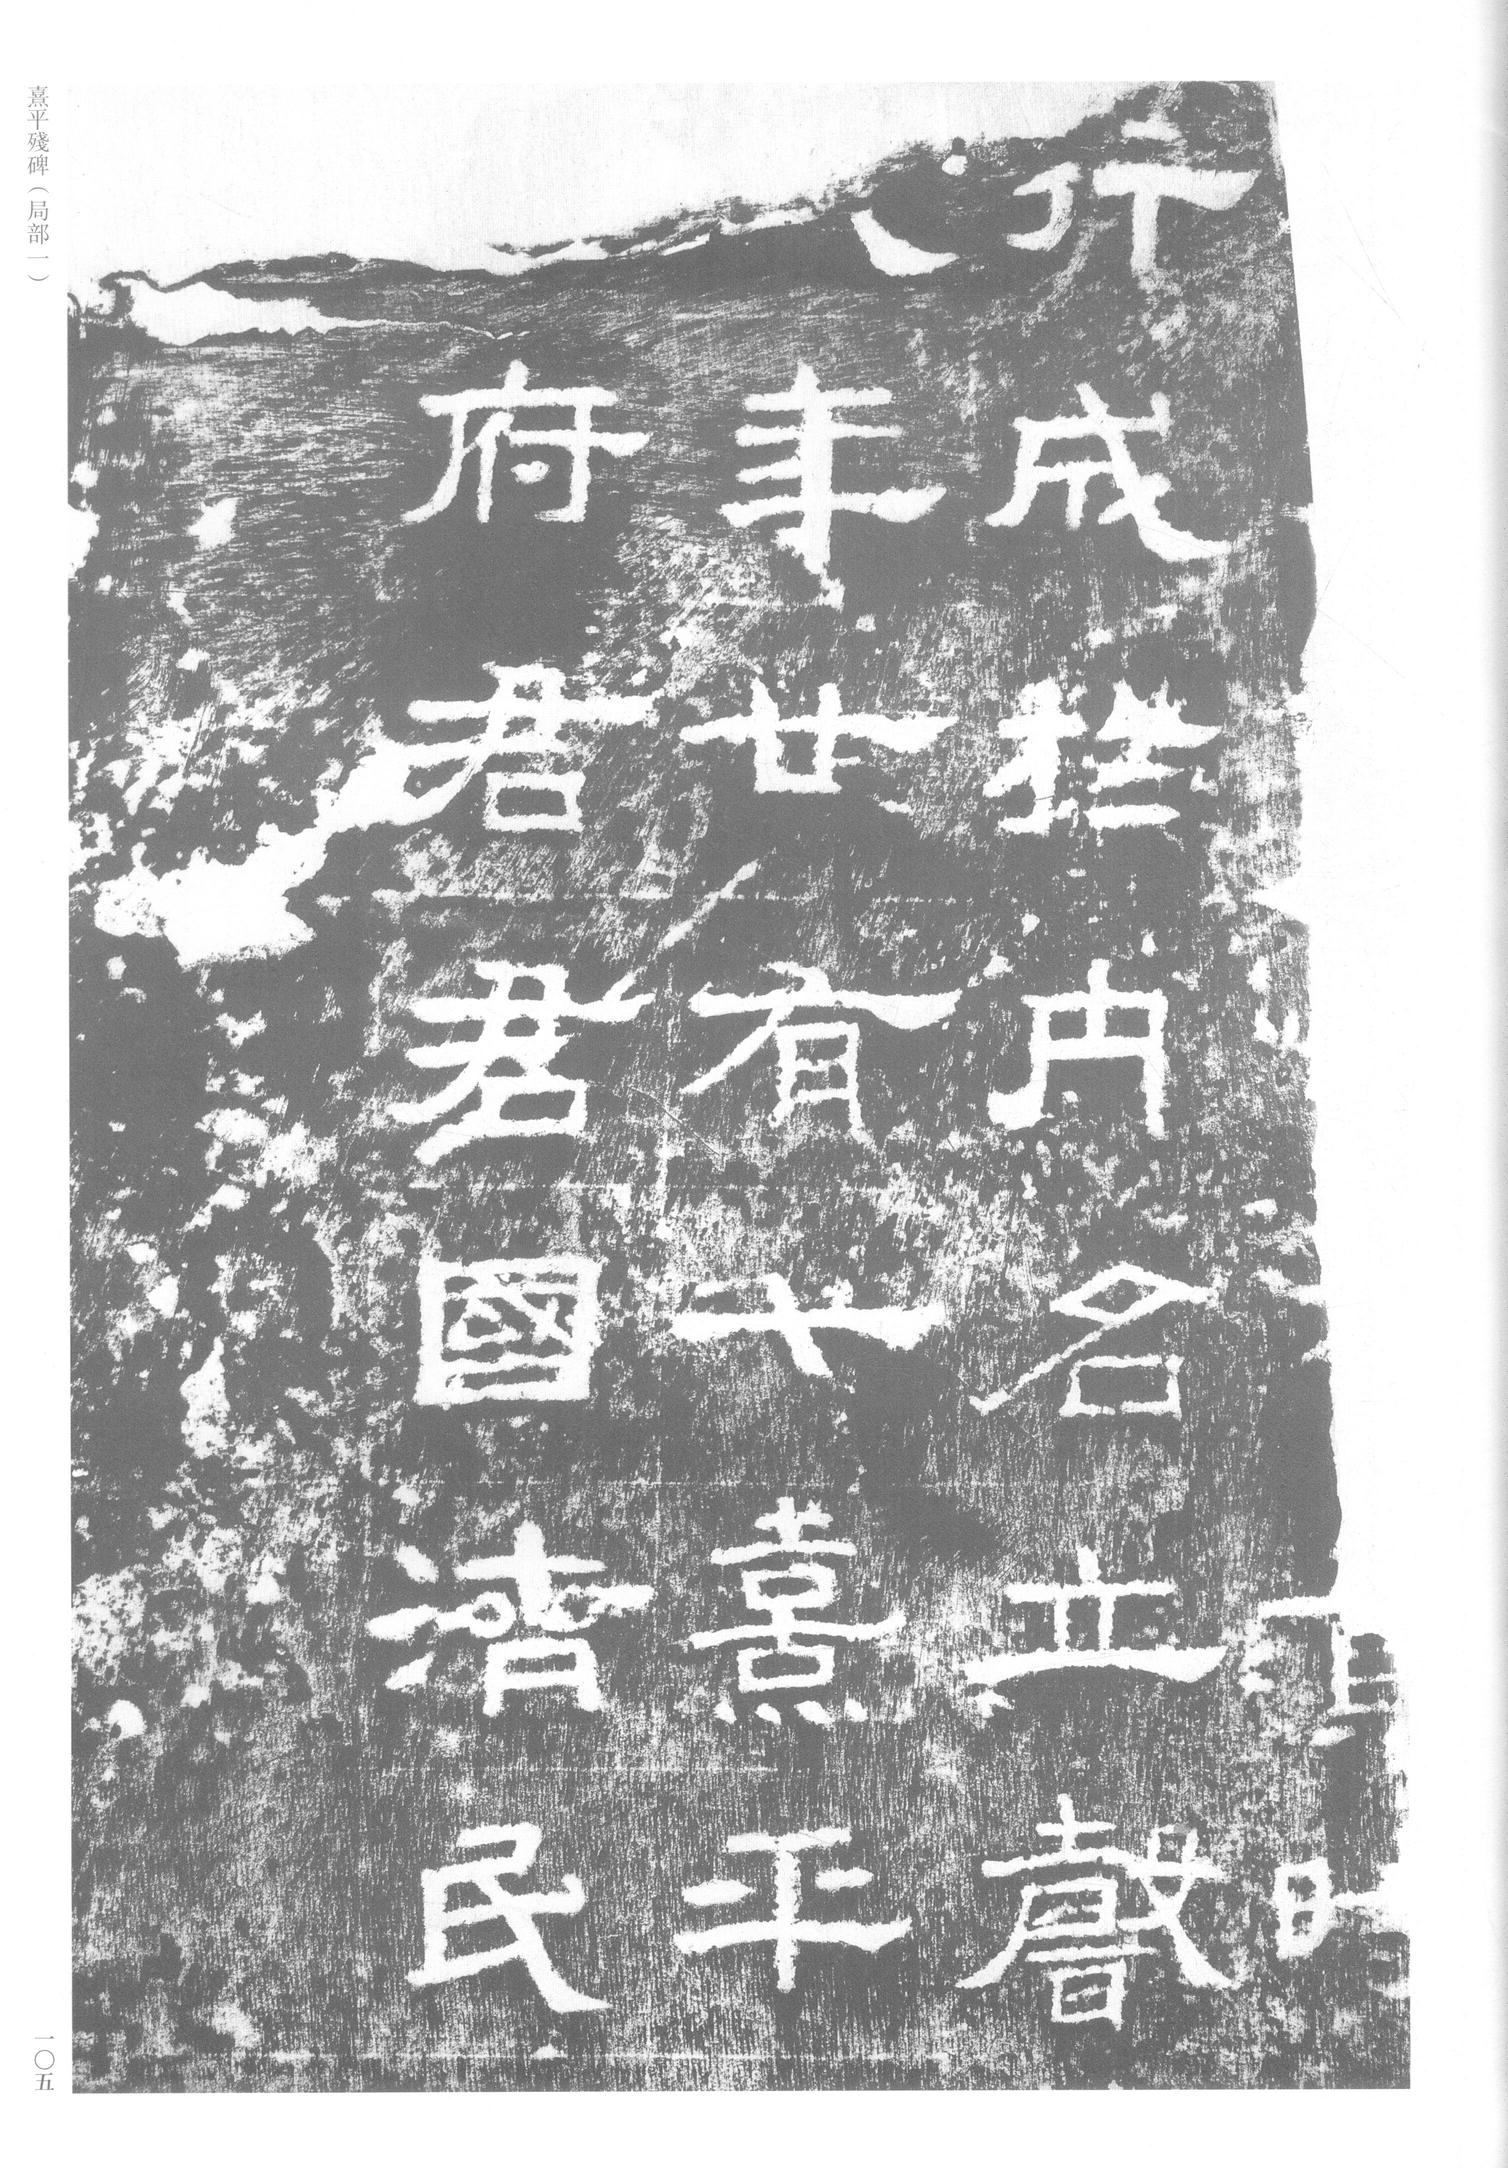 行成於内名立聲
年廿有七熹平
府君君國濟民
熹平殘碑（局部一）
一〇五